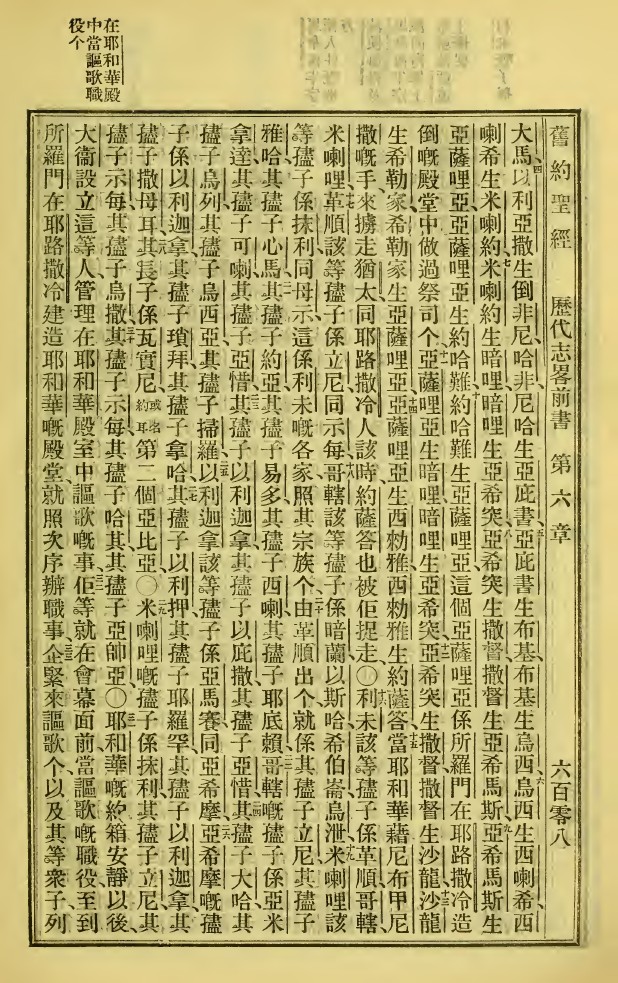 在耶和華殿
中當謳歌職
役个
舊約聖經 歷代志畧前書 第六章 六百零八
大馬以利亞撒生倒非尼哈非尼哈生亞庇書亞庇書生布基布基生烏西烏西生西喇希西
喇希生米喇約米喇約生暗哩暗哩生亞希突亞希突生撒督撒督生亞希馬斯亞希馬斯生
亞薩哩亞亞薩哩亞生約哈難約哈難生亞薩哩亞這個亞薩哩亞係所羅門在耶路撒冷造
倒嘅殿堂中做過祭司个亞薩哩亞生暗哩暗哩生亞希突亞希突生撒督撒督生沙龍沙龍
生希勒家希勒家生亞薩哩亞亞薩哩亞生西勑雅西勑雅生約薩答當耶和華藉尼布甲尼
撒嘅手來擄走猶太同耶路撒冷人該時約薩答也被佢捉走〇利未該等孻子係革順哥轄
米喇哩革順該等孻子係立尼同示每哥轄該等孻子係暗蘭以斯哈希伯崙烏泄米喇哩該
等孻子係抹利同母示這係利未嘅各家照其宗族个由革順出个就係其孻子立尼其孻子
雅哈其孻子心馬其孻子約亞其孻子易多其孻子西喇其孻子耶底賴哥轄嘅孻子係亞米
拿達其孻子可喇其孻子亞惜其孻子以利迦拿其孻子以庇撒其孻子亞惜其孻子大哈其
孻子烏列其孻子烏西亞其孻子掃羅以利迦拿該等孻子係亞馬賽同亞希摩亞希摩嘅孻
子係以利迦拿其孻子瑣拜其孻子拿哈其孻子以利押其孻子耶羅罕其孻子以利迦拿其
孻子撒母耳其長子係瓦實尼或名約耳第二個亞比亞〇米喇哩嘅孻子係抹利其孻子立尼其
孻子示每其孻子烏撒其孻子示每其孻子哈其其孻子亞帥亞〇耶和華嘅約箱安靜以後
大衞設立這等人管理在耶和華殿室中謳歌嘅事佢等就在會幕面前當謳歌嘅職役至到
所羅門在耶路撒冷建造耶和華嘅殿堂就照次序辦職事企緊來謳歌个以及其等衆子列